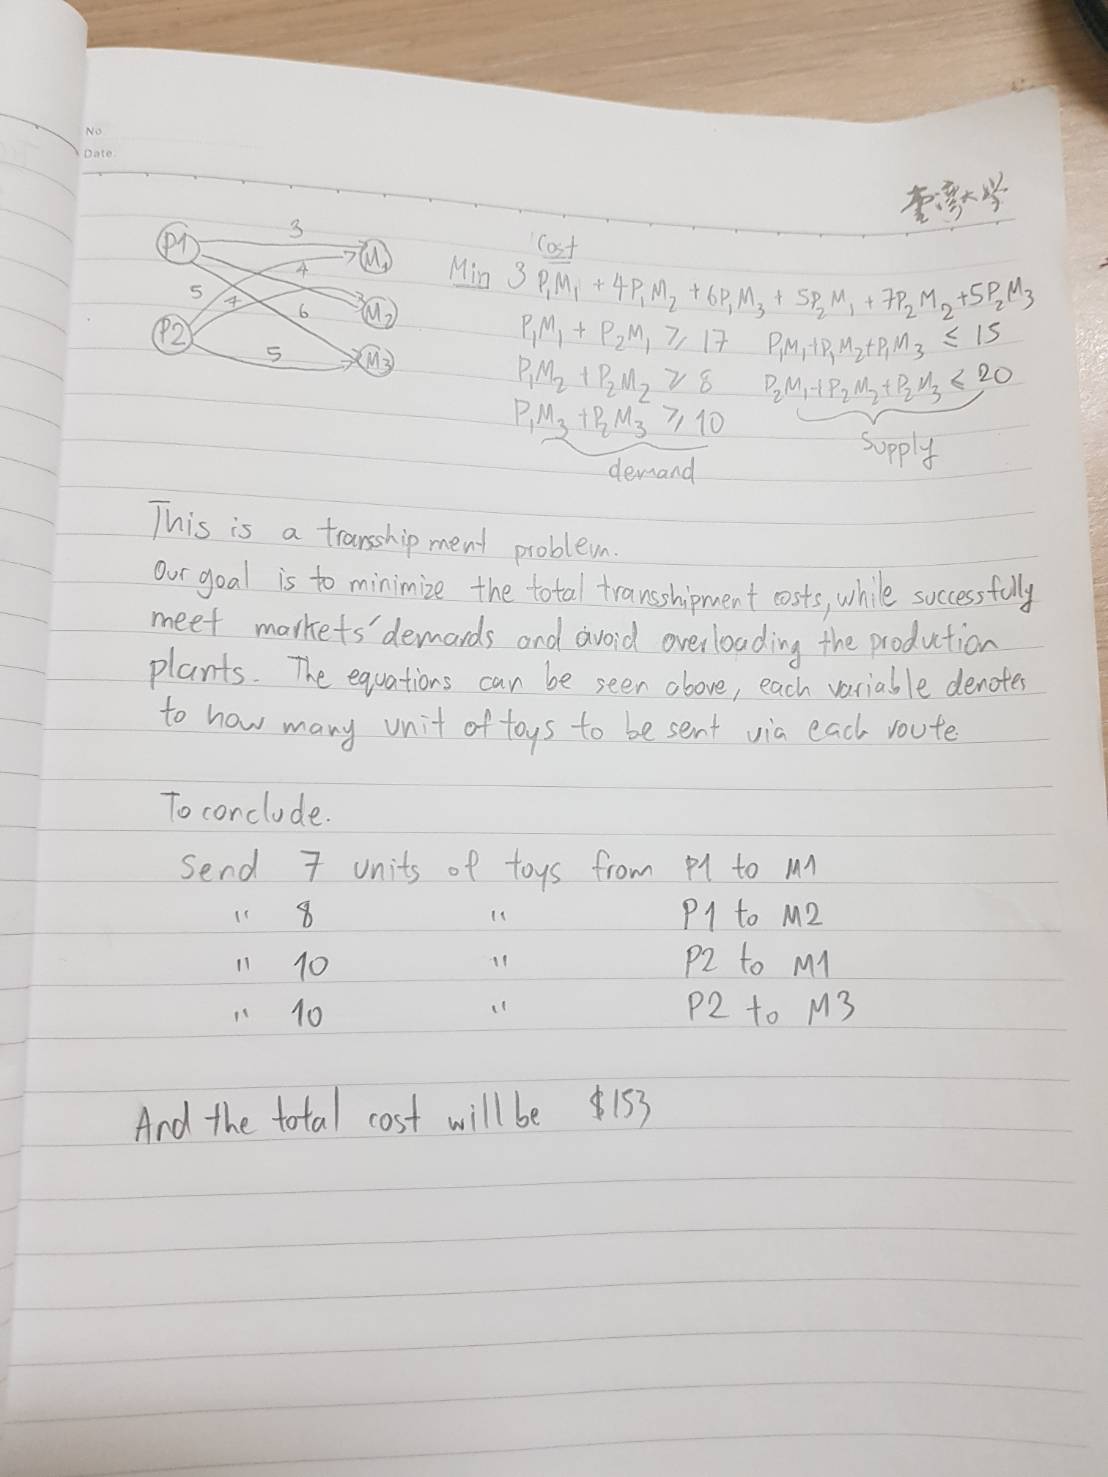 No.
Date.
臺灣大學
P1
3
M1
4
5
7
6
M2
P2
5
M3
Cost
Min 3 P₁M₁ + 4P₁M₂ + 6P₁M₃ + 5P₂M₁ + 7P₂M₂ + 5P₂M₃
P₁M₁ + P₂M₁ ≥ 17 P₁M₁+P₁M₂+P₁M₃ ≤ 15
P₁M₂ + P₂M₂ ≥ 8 P₂M₁+P₂M₂+P₂M₃ ≤ 20
P₁M₃ + P₂M₃ ≥ 10
Supply
demand
This is a transshipment problem.
Our goal is to minimize the total transshipment costs, while successfully
meet markets' demands and avoid overloading the production
plants. The equations can be seen above, each variable denotes
to how many unit of toys to be sent via each route.
To conclude.
Send 7 units of toys from P1 to M1
" 8 " P1 to M2
" 10 " P2 to M1
" 10 " P2 to M3
And the total cost will be $153